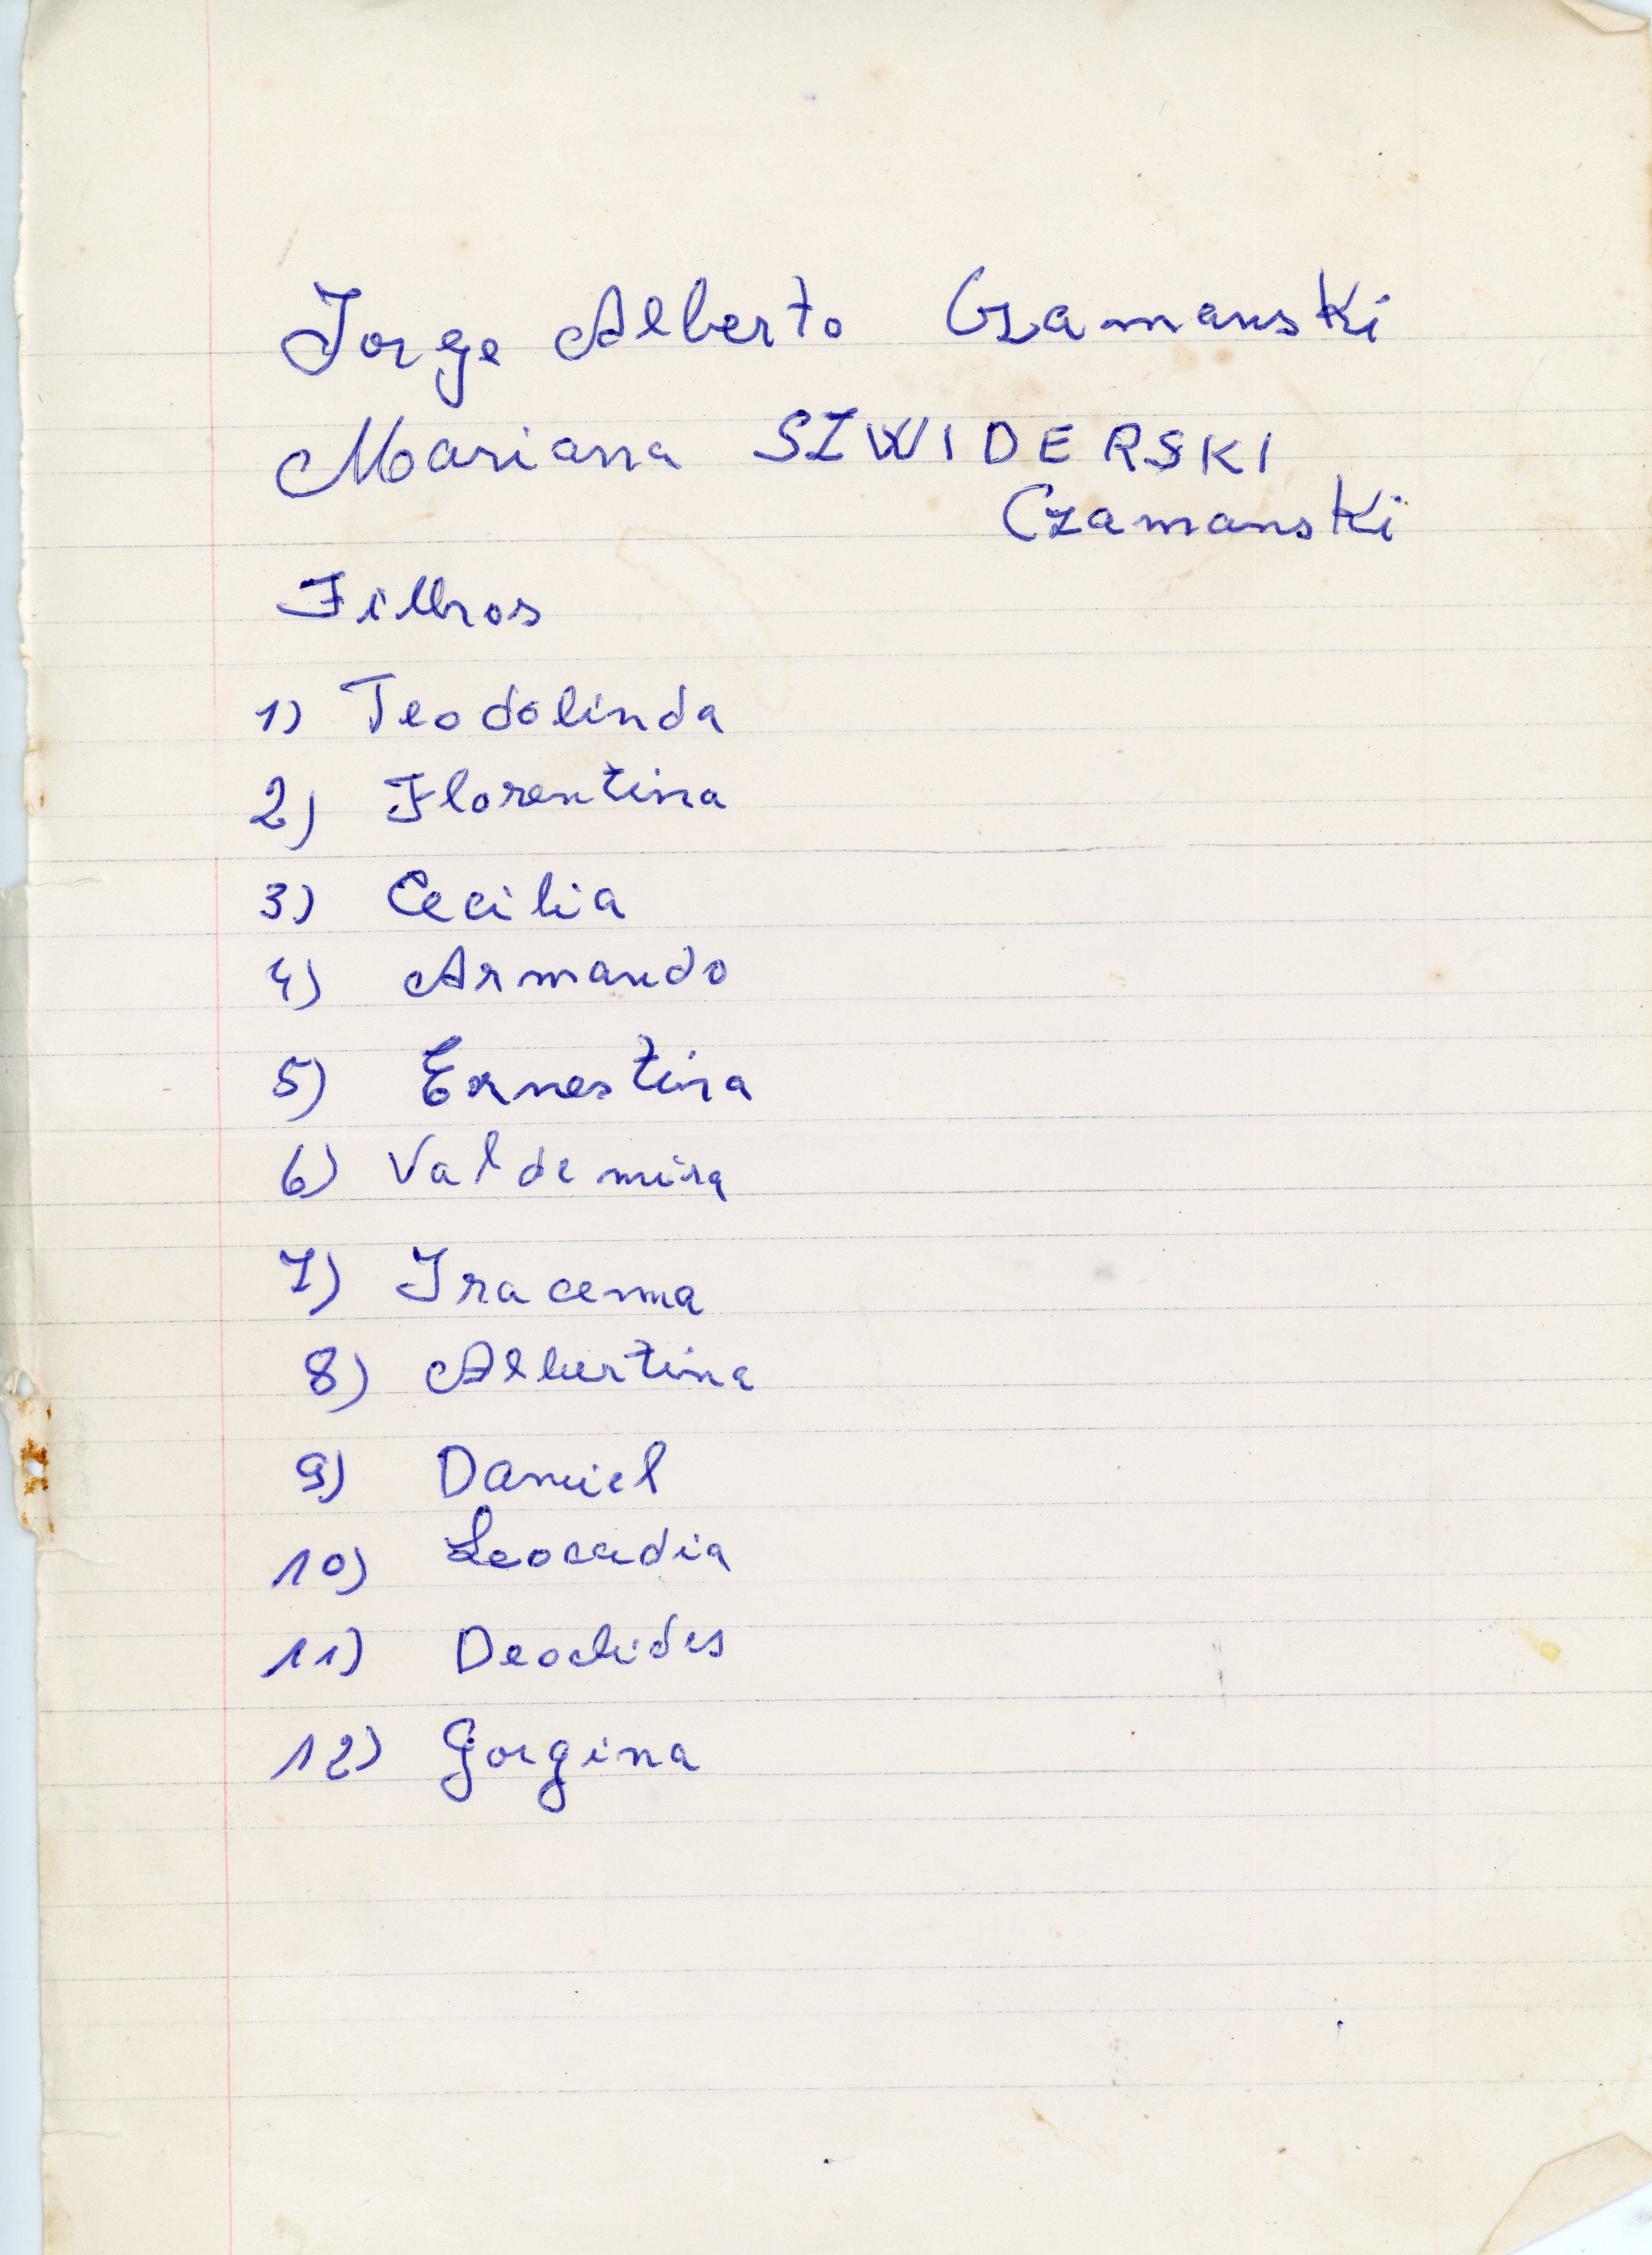 Jorge Alberto Czamanski
Mariana SZWIDERSKI
Czamanski
Filhos
1) Teodolinda
2) Florentina
3) Cecilia
4) Armando
5) Ernestina
6) Valdemira
7) Iracema
8) Albertina
9) Daniel
10) Leocadia
11) Deoclides
12) Gorgina